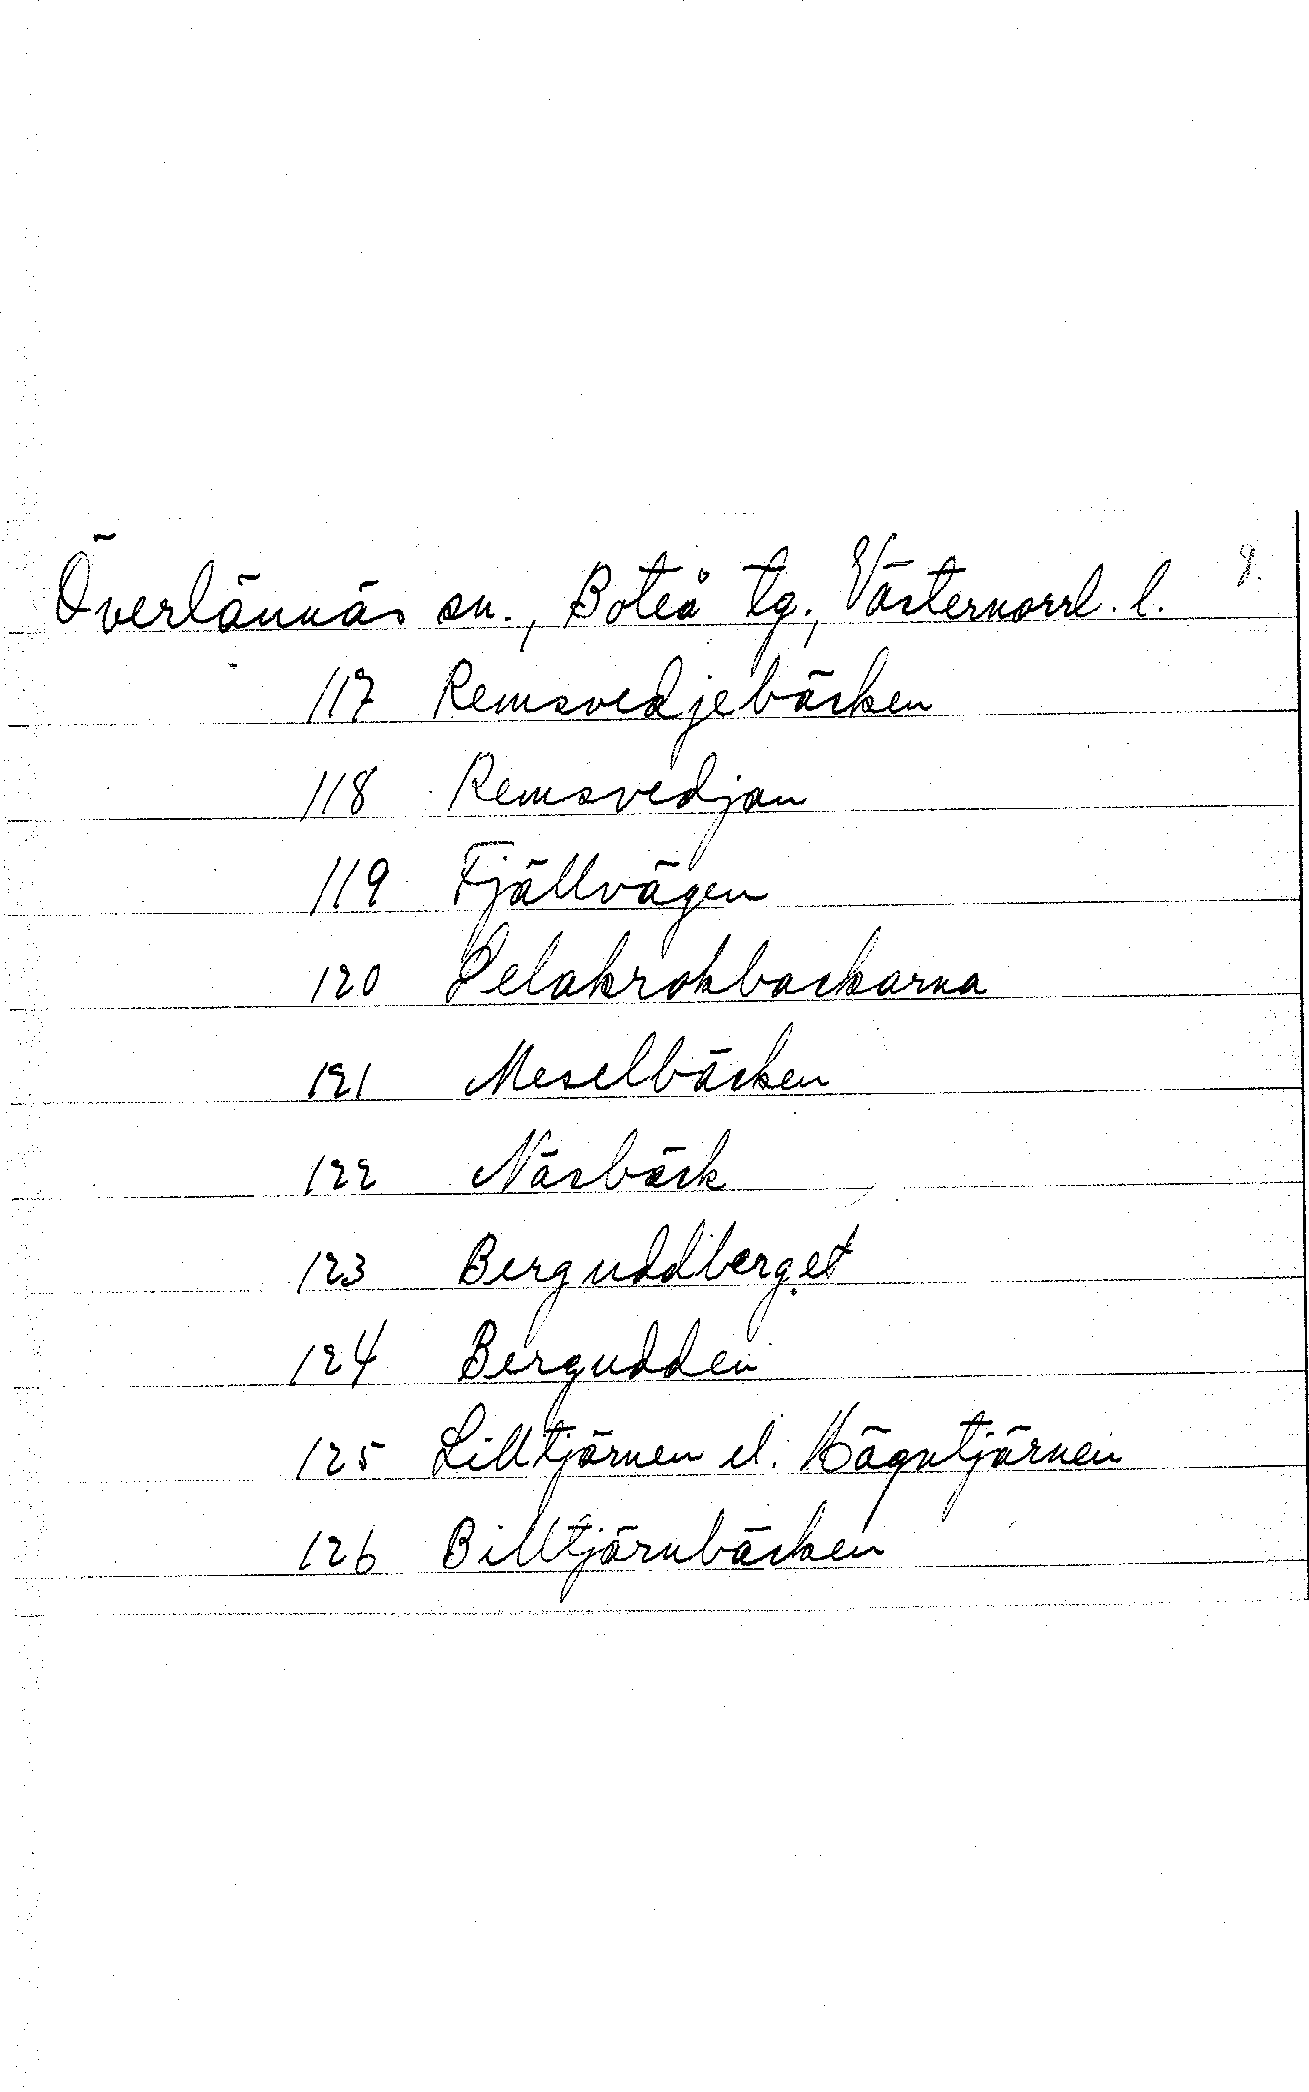 Överlännäs sn., Boteå tg., Västernorrl. l. 9.
117 Remsvedjebäcken
118 Remsvedjan
119 Fjällvägen
120 Pelakrokbackarna
121 Meselbäcken
122 Näsbäck
123 Berguddberget
124 Bergudden
125 Lilltjärnen el. Hägntjärnen
126 Billtjärnbäcken